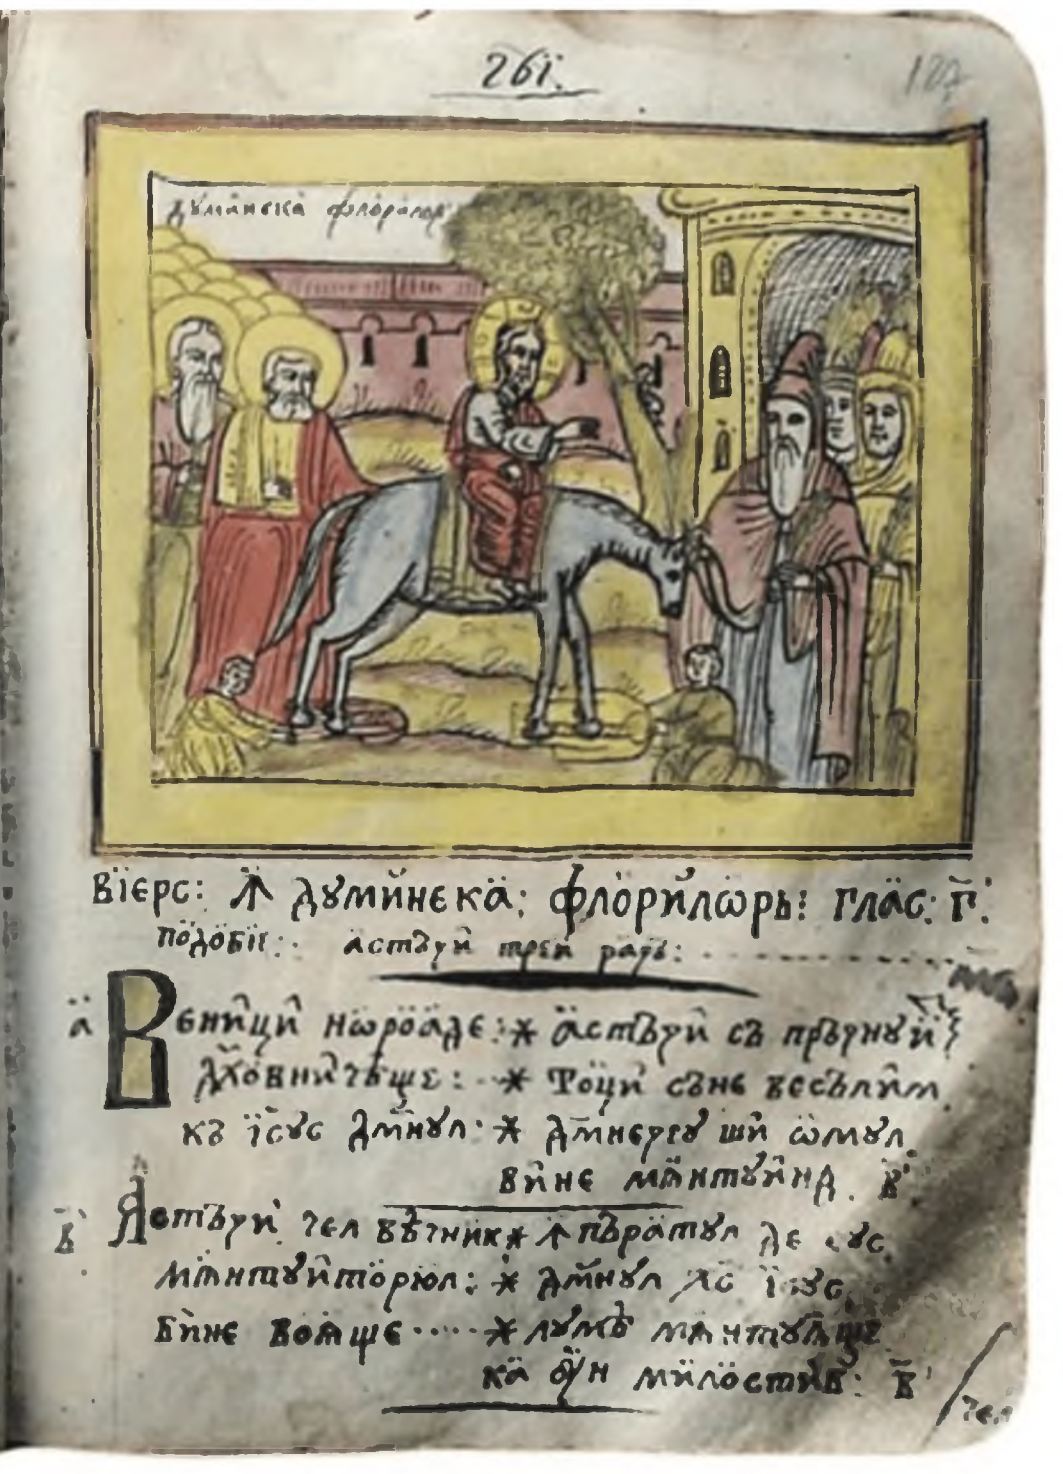 261.
127
дꙋминєка флорилор
вїерс: ꙟ дꙋминєка: флорилѡрь: глас: г҃:
подобїе: астъꙁи трей раꙁь:
а В҆ениций нѡроаде: * астъꙁи съ прѣꙁнꙋй
дх҃овничѣще: * Тоций съне веселим
къ їсꙋс дм҃нꙋл * дм҃неꙁеꙋ ший ѡмꙋл
вине мѫнтꙋинд. в҃
в҃ Астъꙁи чел вѣчник * ꙟпъратꙋл де сꙋс
мѫнтꙋиторюл: * дм҃нꙋл хс їсꙋс,
бине воѧще * лꙋмѣ мѫнтꙋѧще
ка ꙋн милостив: в҃
чел